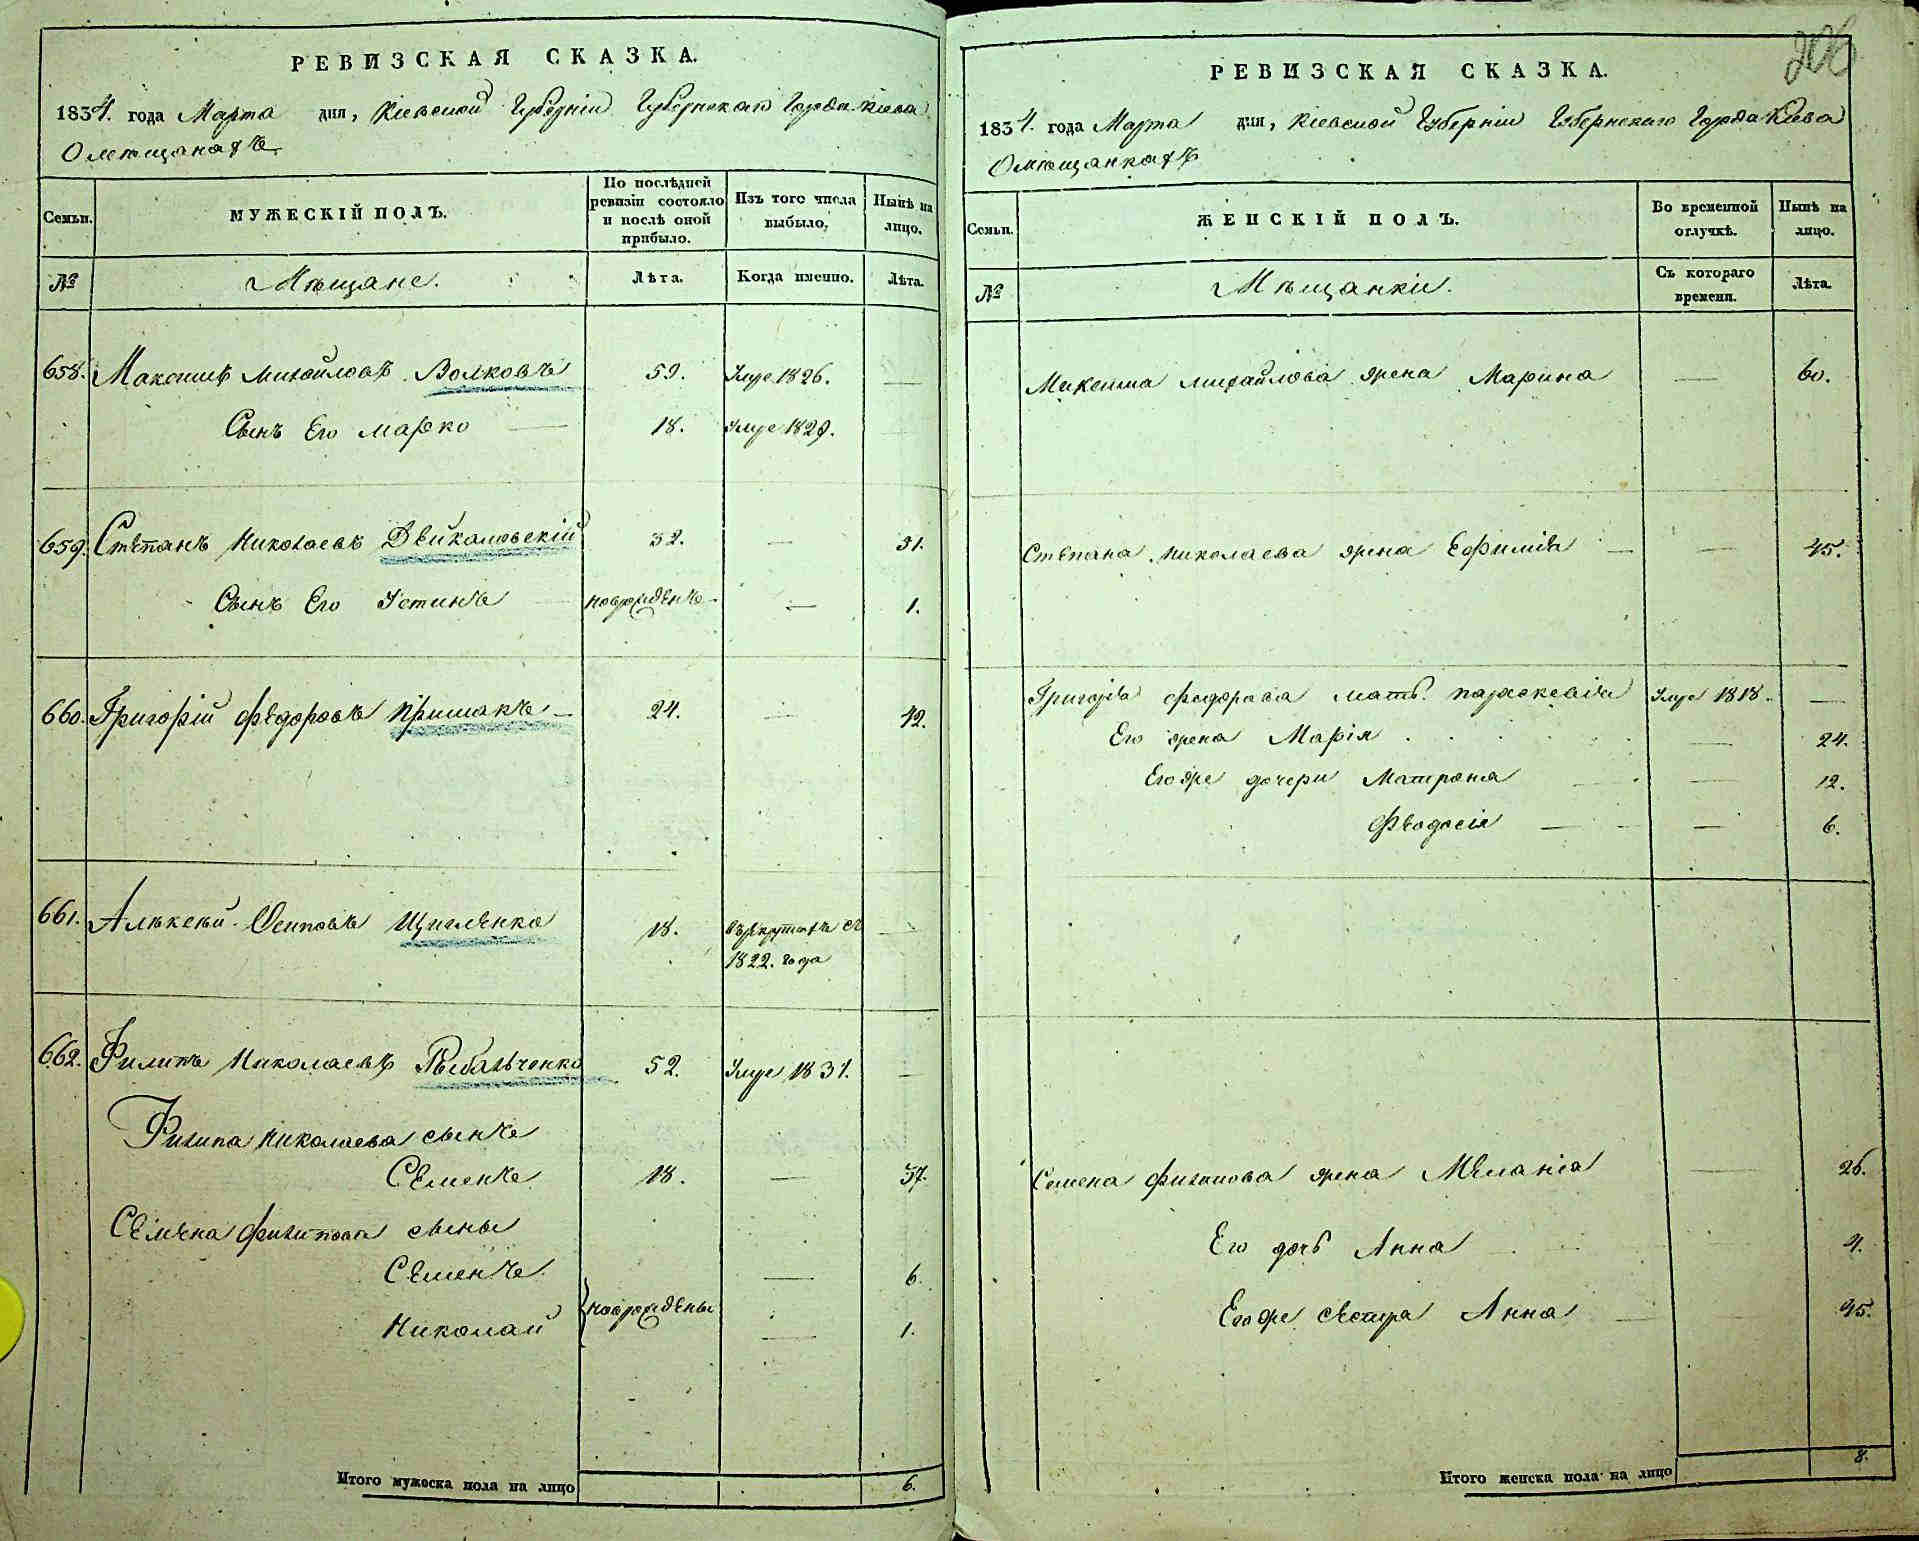 РЕВИЗСКАЯ СКАЗКА.
1834. года Марта дня, Кіевской Губерніи Губернскаго Города Кіева
О мѣщанахъ
Семьи.
МУЖЕСКІЙ ПОЛЪ.
По послѣдней ревизіи состояло и послѣ оной прибыло.
Изъ того числа выбыло.
Нынѣ на лицо.
№
Мѣщане.
Лѣта.
Когда именно.
Лѣта.
658. Максимъ Михайловъ Волковъ 59. Умре 1826. —
Сынъ Его Марко — 18. Умре 1829.
659. Стѣпанъ Николаевъ 32. — 51.
Сынъ Его Устинъ новорожденъ — 1.
660. Григорій Федоровъ Пришакъ — 24. — 42.
661. Алѣксѣй Осиповъ 18. Въ рекрутахъ съ —
1822. года
662. Филипъ Николаевъ Рыбальченко 52. Умре 1831. —
Филипа Николаева сынъ
Семенъ 18. — 37.
Семена Филипова сыны
Семенъ — 6.
новорождены
Николай — 1.
Итого мужеска пола на лицо 6.
206
РЕВИЗСКАЯ СКАЗКА.
1834. года Марта дня, Кіевской Губерніи Губернскаго Города Кіева
О мѣщанкахъ
Семьи.
ЖЕНСКІЙ ПОЛЪ.
Во временной отлучкѣ.
Нынѣ на лицо.
№
Мѣщанки.
Съ котораго времени.
Лѣта.
Максима Михайлова жена Марина — 60.
Стѣпана Николаева жена Ефимія — — 45.
Григорія Федорова мать Параскевія Умре 1818. —
Его жена Марія — 24.
Его же дочери Матрона — — 12.
Феодосія — — 6.
Семена Филипова жена Меланія — 26.
Его дочь Анна 4.
Его же сестра Анна — 45.
Итого женска пола на лицо 8.